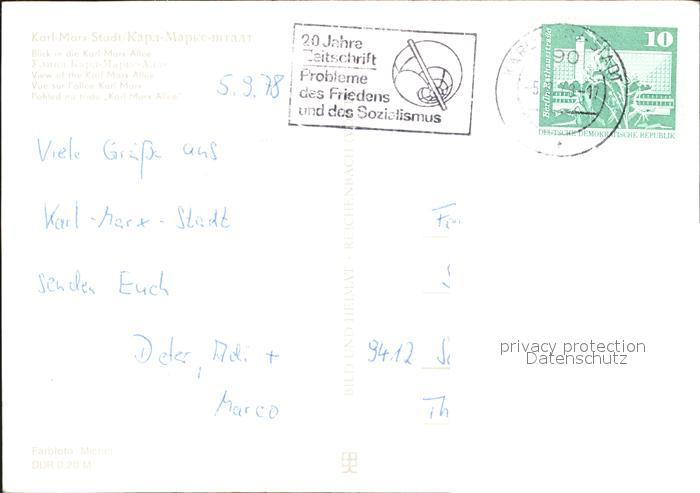 Karl-Marx-Stadt · Карл-Маркс-штадт
Blick in die Karl-Marx-Allee
View of the Karl Marx Allee
Vue sur l'allée Karl Marx
Pohled na třídu „Karl Marx Allee"
5.9.78
20 Jahre
Zeitschrift
Probleme
des Friedens
und des Sozialismus
90
10
Berlin, Rathausstraße
DEUTSCHE DEMOKRATISCHE REPUBLIK
Viele Grüße aus
Karl-Marx-Stadt
senden Euch
Adi +
Marco
9412
BILD UND HEIMAT · REICHENBACH
privacy protection
Datenschutz
Farbfoto: 
DDR 0,20 M